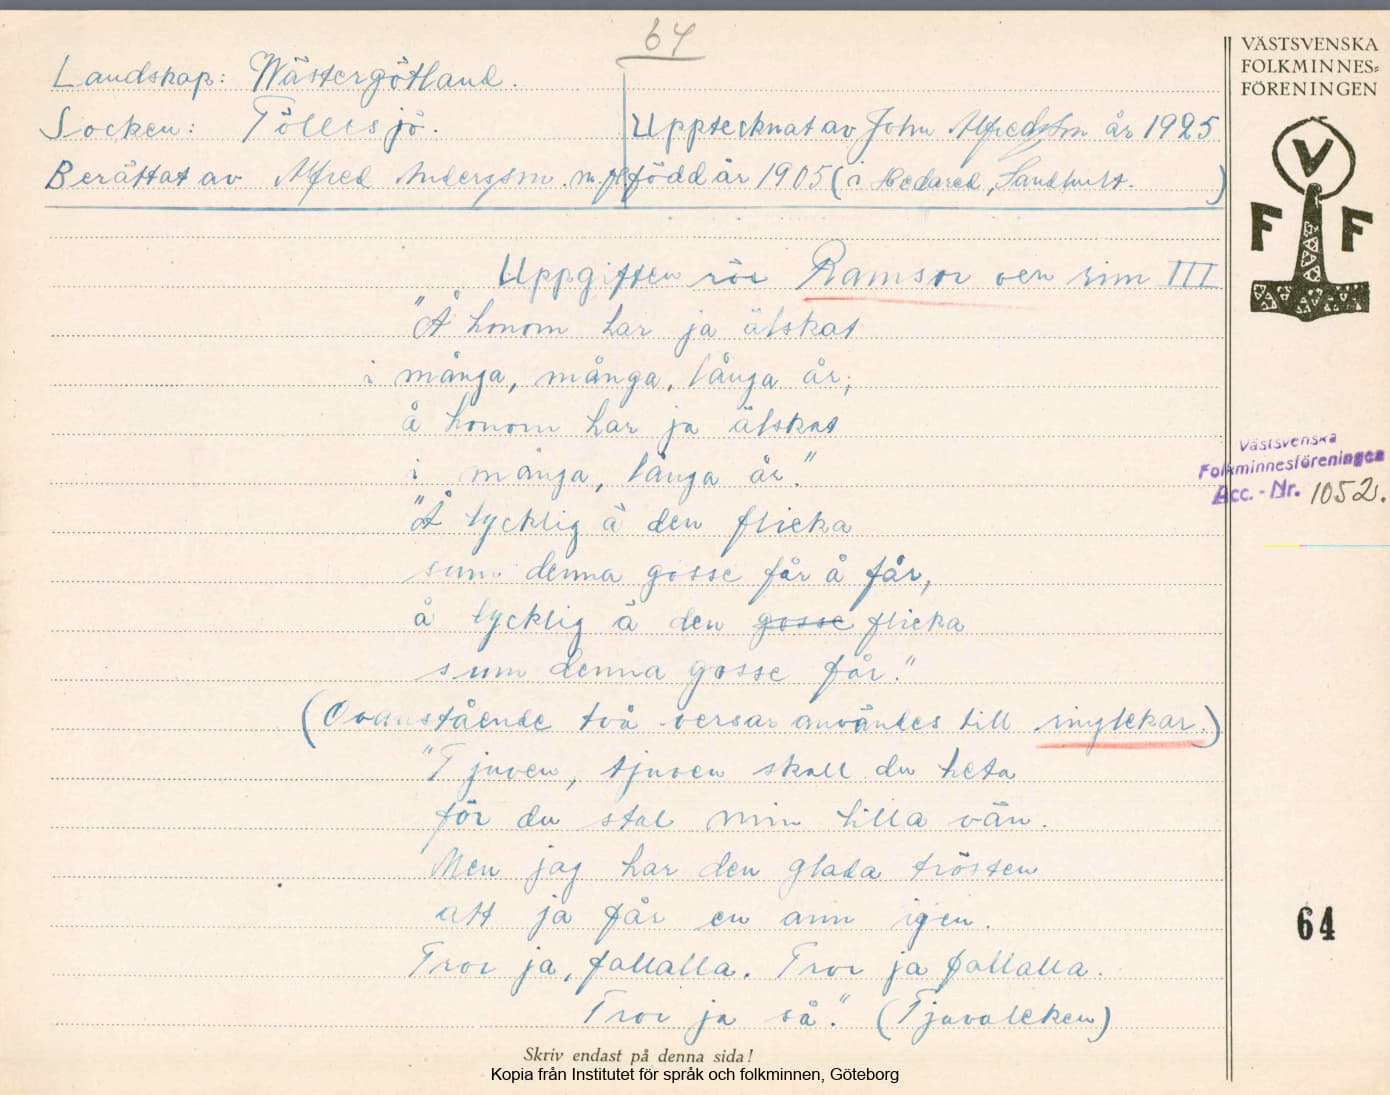 64
VÄSTSVENSKA
FOLKMINNES=
FÖRENINGEN
V
F F
Landskap: Wästergötland.
Socken: Töllesjö. Upptecknat av John Alfredsson år 1925
Berättat av Alfred Andersson m.fl född år 1905 (i Hedared, Sandhult. )
Uppgiften rör Ramsor och rim III
"Å honom har ja älskat
i många, många, långa år;
å honom har ja älskat
i många, långa år."
"Å lycklig ä den flicka
sum denna gosse får å får,
å lycklig ä den gosse flicka
sum denna gosse får."
(Ovanstående två versar användes till ringlekar.)
"Tjuven, tjuven skall du heta
för du stal min lilla vän.
Men jag har den glada trösten
att ja får en ann igen.
Tror ja, fallalla. Tror ja fallalla.
Tror ja så." (Tjuvaleken)
Västsvenska
Folkminnesföreningen
Acc.-Nr. 1052.
64
Skriv endast på denna sida!
Kopia från Institutet för språk och folkminnen, Göteborg